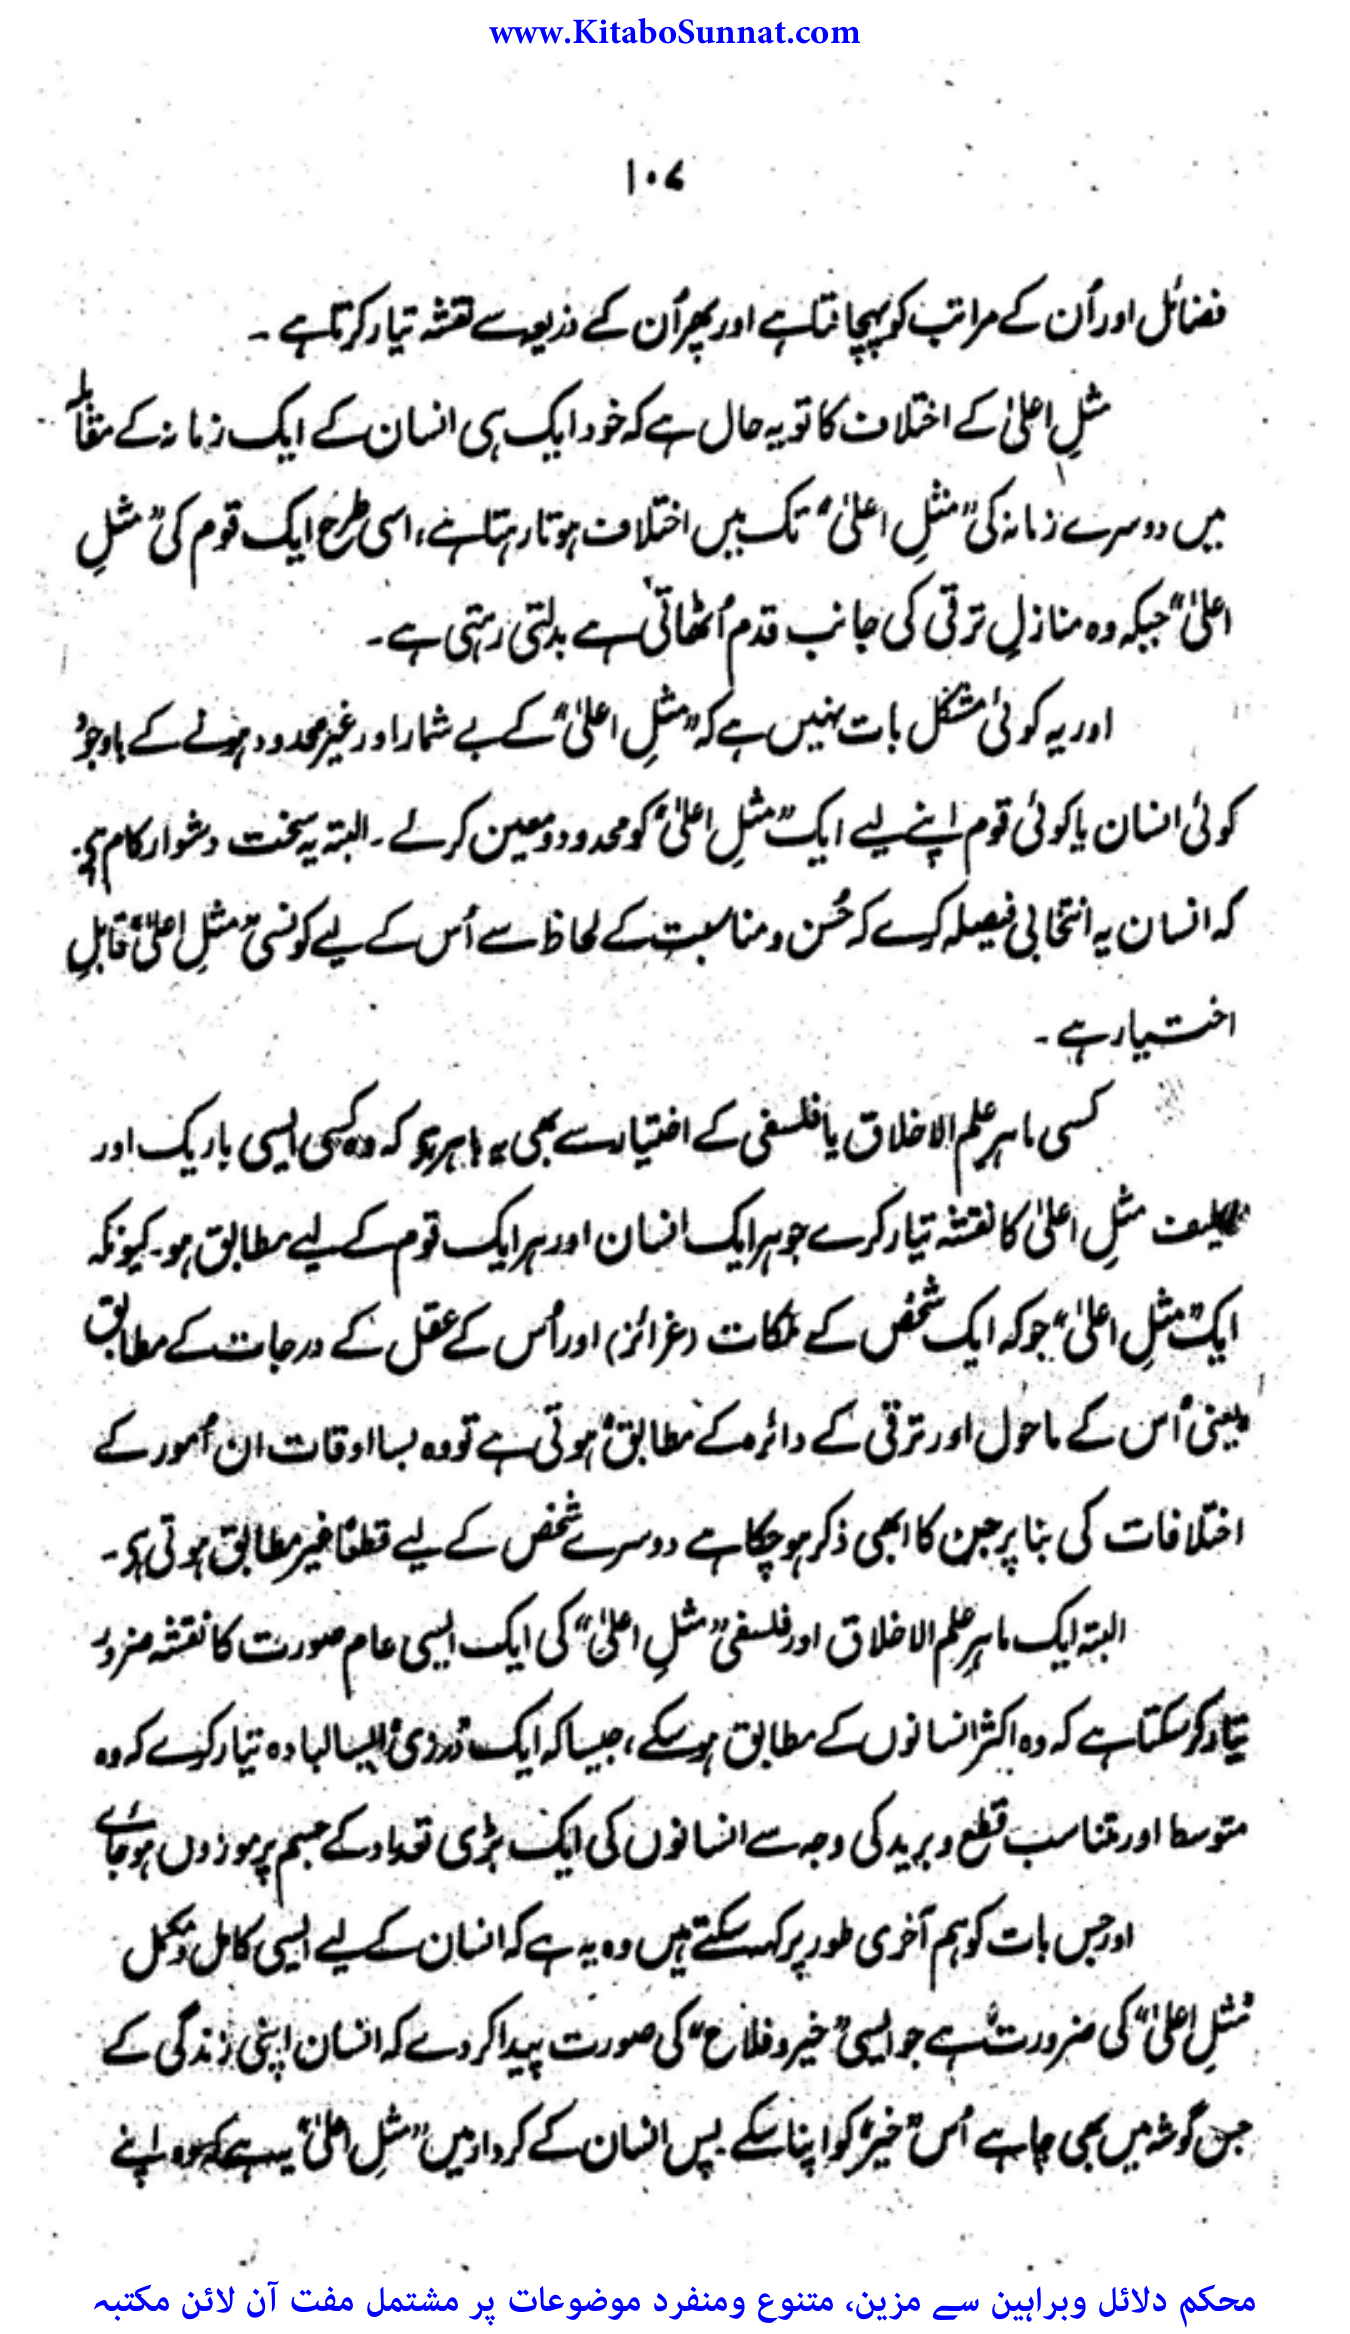 www.KitaboSunnat.com
۱۰۷
فضائل اور اُن کے مراتب کو پہچانتا ہے اور پھر اُن کے ذریعہ سے نقشہ تیار کرتا ہے ۔
مثلِ اعلیٰ کے اختلاف کا تو یہ حال ہے کہ خود ایک ہی انسان کے ایک زمانہ کے مقابلہ
میں دوسرے زمانہ کی "مثلِ اعلیٰ" تک میں اختلاف ہوتا رہتا ہے، اسی طرح ایک قوم کی "مثلِ
اعلیٰ" جبکہ وہ منازلِ ترقی کی جانب قدم اُٹھاتی ہے بدلتی رہتی ہے ۔
اور یہ کوئی مشکل بات نہیں ہے کہ "مثلِ اعلیٰ" کے بے شمار اور غیر محدود ہونے کے باوجود
کوئی انسان یا کوئی قوم اپنے لیے ایک "مثلِ اعلیٰ" کو محدود و معین کرلے ۔ البتہ یہ سخت دشوار کام ہے
کہ انسان یہ انتخابی فیصلہ کرے کہ حُسن و مناسبت کے لحاظ سے اُس کے لیے کونسی "مثلِ اعلیٰ" قابلِ
اختیار ہے ۔
کسی ماہر علم الاخلاق یا فلسفی کے اختیار سے بھی یہ باہر ہو کہ وہ کسی ایسی باریک اور
مثلِ اعلیٰ کا نقشہ تیار کرے جو ہر ایک انسان اور ہر ایک قوم کے لیے مطابق ہو ۔ کیونکہ
ایک "مثلِ اعلیٰ" جو کہ ایک شخص کے ملکات (غرائز) اور اُس کے عقل کے درجات کے مطابق
یعنی اُس کے ماحول اور ترقی کے دائرہ کے مطابق ہوتی ہے تو وہ بسا اوقات ان اُمور کے
اختلافات کی بنا پر جن کا ابھی ذکر ہو چکا ہے دوسرے شخص کے لیے قطعًا غیر مطابق ہوتی ہو ۔
البتہ ایک ماہرِ علم الاخلاق اور فلسفی "مثلِ اعلیٰ" کی ایک ایسی عام صورت کا نقشہ ضرور
تیار کر سکتا ہے کہ وہ اکثر انسانوں کے مطابق ہو سکے، جیسا کہ ایک درزی ایسا لبادہ تیار کرے کہ وہ
متوسط اور متناسب قطع و برید کی وجہ سے انسانوں کی ایک بڑی تعداد کے جسم پر موزوں ہو جائے
اور جس بات کو ہم آخری طور پر کہہ سکتے ہیں وہ یہ ہے کہ انسان کے لیے ایسی کامل و مکمل
"مثلِ اعلیٰ" کی ضرورت ہے جو ایسی "خیر و فلاح" کی صورت پیدا کر دے کہ انسان اپنی زندگی کے
جس گوشہ میں بھی چاہے اُس "خیر" کو اپنا سکے پس انسان کے کردار میں "مثلِ اعلیٰ" یہ ہے کہ وہ اپنے
محکم دلائل وبراہین سے مزین، متنوع ومنفرد موضوعات پر مشتمل مفت آن لائن مکتبہ